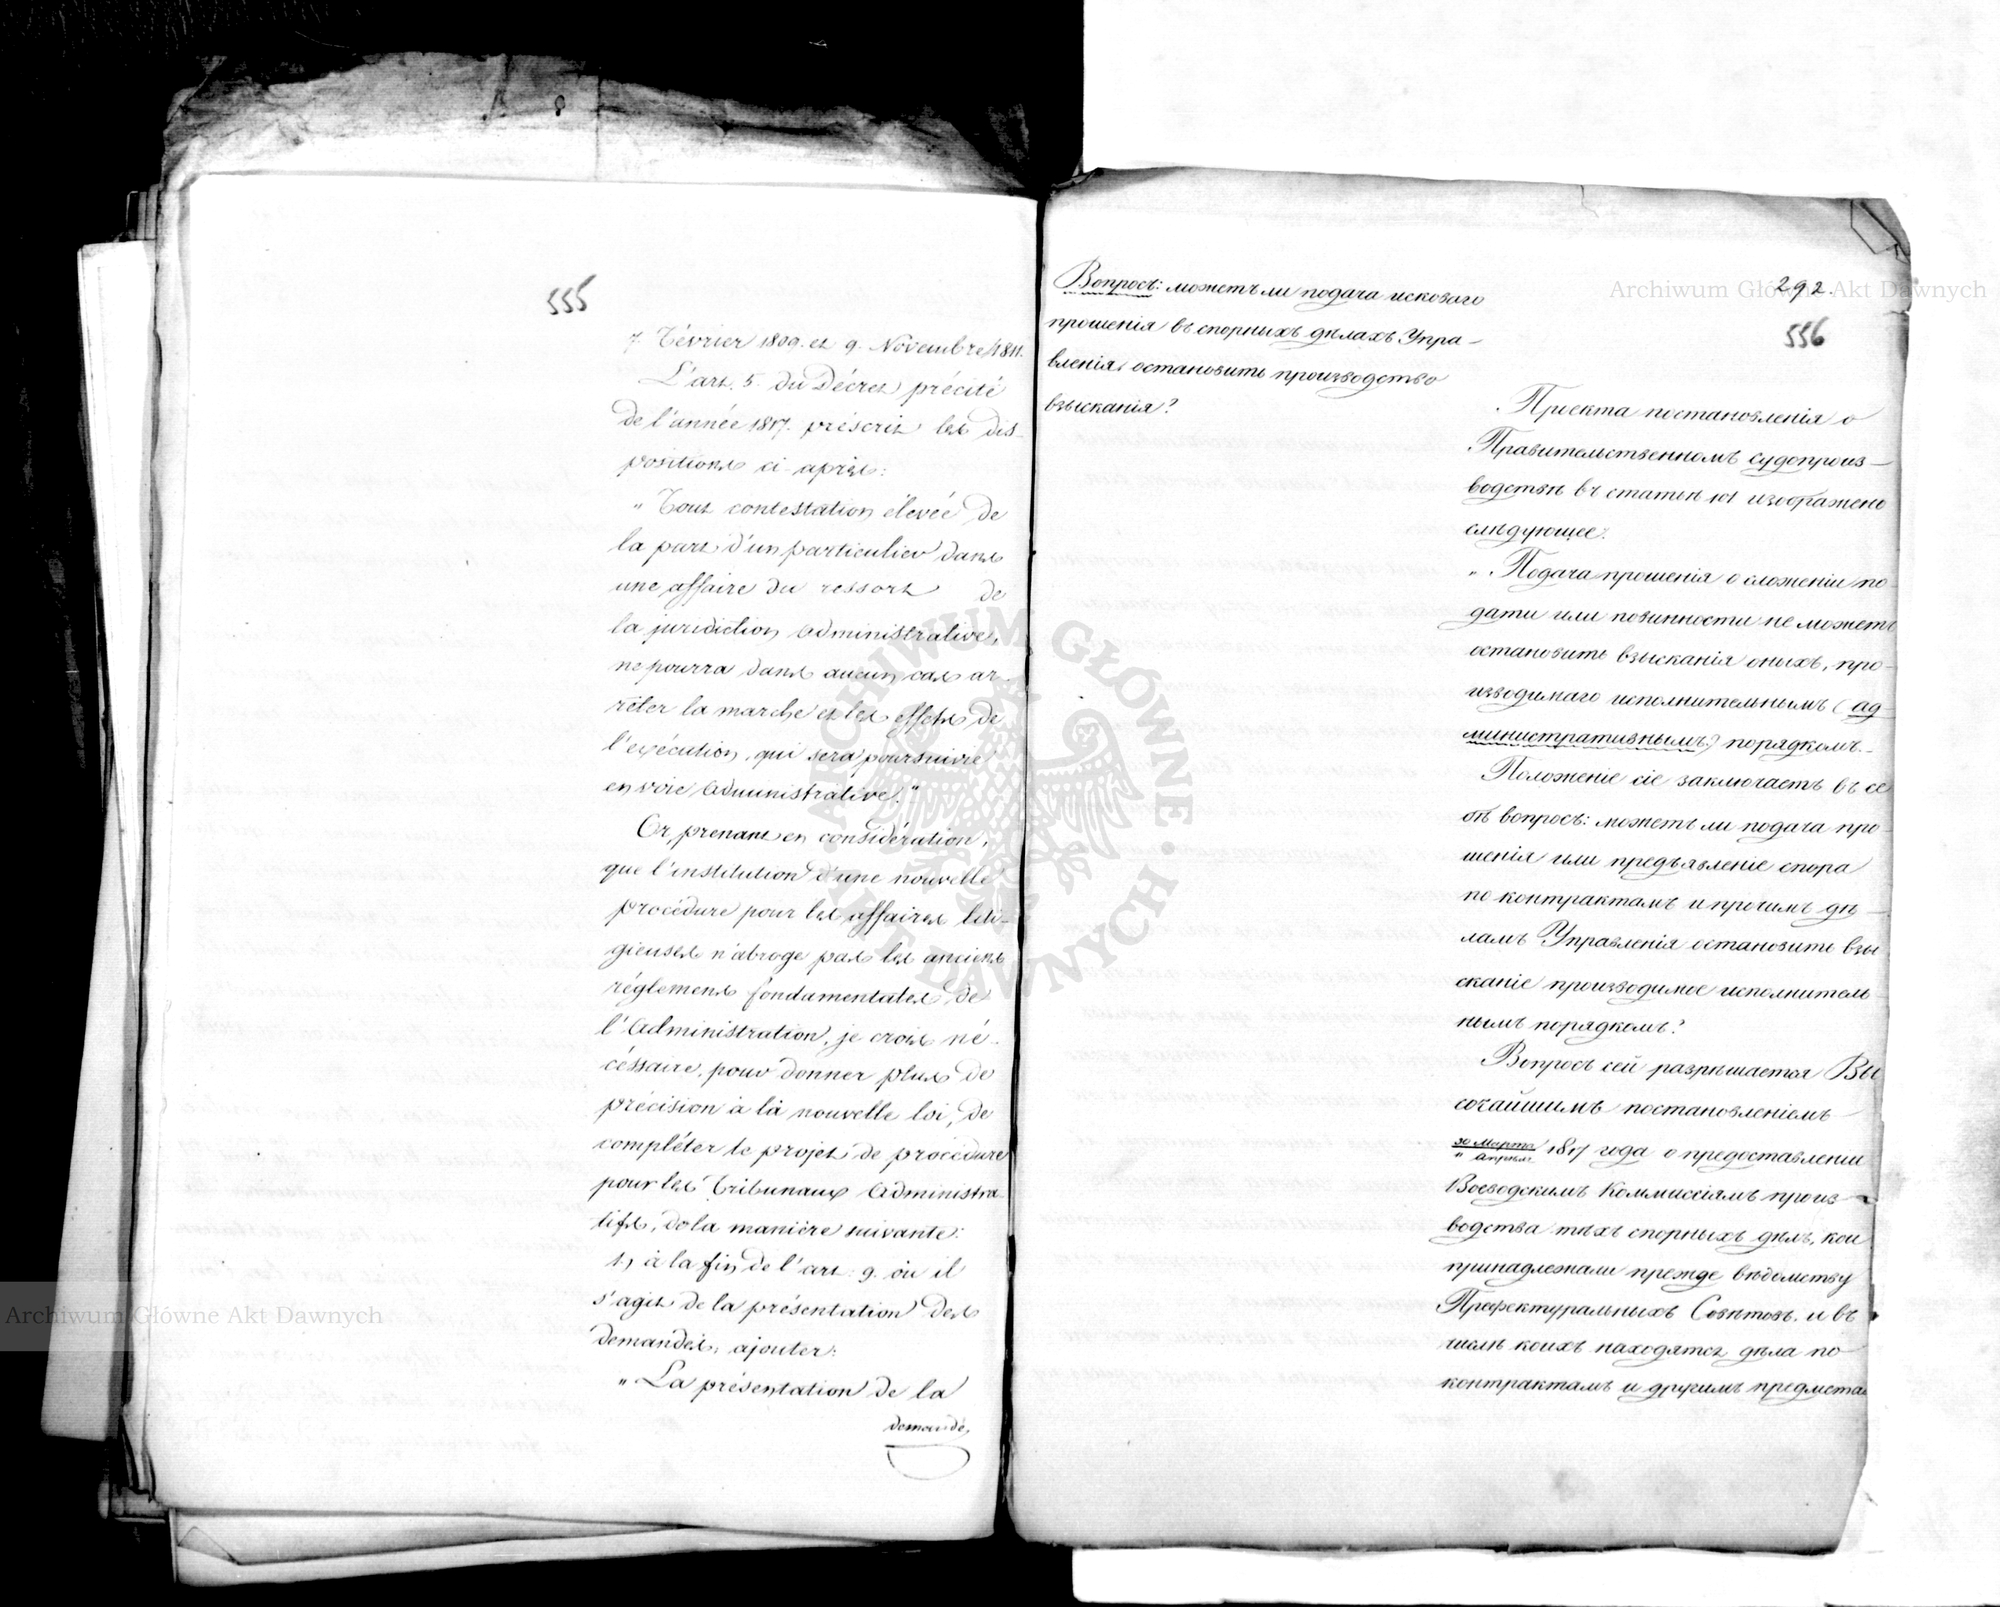 555
7. Février 1809. et 9. Novembre 1811.
L'art. 5. du Décret précité
de l'année 1817. préscrit les dis-
positions ci-après:
"Tout contestation élevée de
la part d'un particulier dans
une affaire du ressort de
la juridiction administrative,
ne pourra dans aucun cas ar-
rêter la marche et les effets de
l'exécution, qui sera poursuivie
en voie administrative."
Or, prenant en considération,
que l'institution d'une nouvelle
procédure pour les affaires liti-
gieuses n'abroge pas les anciens
réglemens fondamentales de
l'Administration, je crois né-
céssaire, pour donner plus de
précision à la nouvelle loi, de
compléter le projet de procédure
pour les Tribunaux Administra-
tifs, de la manière suivante:
1.) à la fin de l'art. 9. où il
s'agit de la présentation des
demandes, ajouter:
"La présentation de la
demande,
292.
556
Вопросъ: можетъ ли подача исковаго
прошенія въ спорныхъ дѣлахъ Упра-
вленія, остановить производство
взысканія?
Проекта постановленія о
Правительственномъ судопроиз-
водствѣ въ статьѣ 101 изображено
слѣдующее:
"Подача прошенія о сложеніи по-
дати или повинности не можетъ
остановить взысканія оныхъ, про-
изводимаго исполнительнымъ (ад-
министративнымъ) порядкомъ.
Положеніе сіе заключаетъ въ се-
бѣ вопросъ: можетъ ли подача про-
шенія или предъявленіе спора
по контрактамъ и прочимъ дѣ-
ламъ Управленія остановить взы-
сканіе производимое исполнитель-
нымъ порядкомъ?
Вопросъ сей разрѣшается Вы-
сочайшимъ постановленіемъ
30 Марта
11 Апрѣля 1817 года о предоставленіи
Воеводскимъ Коммиссіямъ произ-
водства тѣхъ спорныхъ дѣлъ, кои
принадлежали прежде вѣдомству
Префектуральныхъ Совѣтовъ, и въ
числѣ коихъ находятся дѣла по
контрактамъ и другимъ предмета
Archiwum Główne Akt Dawnych
Archiwum Główne Akt Dawnych
ARCHIWUM GŁÓWNE AKT DAWNYCH